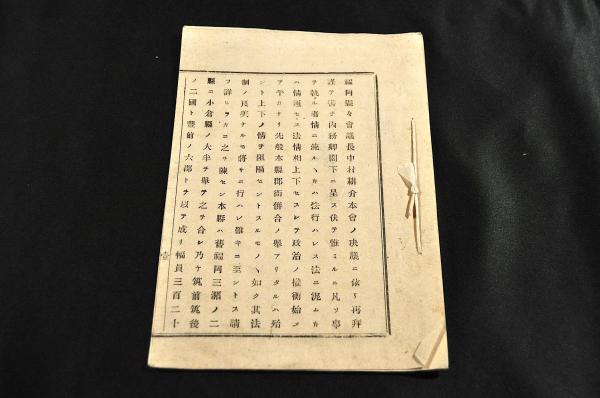 福岡縣々會議長中村耕介本會ノ决議ニ依リ再拜
謹テ書ヲ内務卿閣下ニ呈ス伏テ惟ミルニ凡ソ事
ヲ執ル者情ニ流ルヽ片ハ法行ハレス法ニ泥ム片
ハ情通セス法情相上下セスシテ政治ノ權衡始メ
テ平カナリ先般本縣郡衙併合ノ擧アリタルハ殆
ント上下ノ情ヲ阻隔セントスルモノヽ如ク其法
制ノ良美ナルモ將サニ行ハレ難キニ至ントス請
フ詳ヒラカニ之ヲ陳セン本縣ハ舊福岡三潴ノ二
縣ニ小倉縣ノ大半ヲ擧テ之ヲ合シ乃ケ筑前筑後
ノ二國ト豐前ノ六郡トヲ以テ成リ幅員三百二十
壹